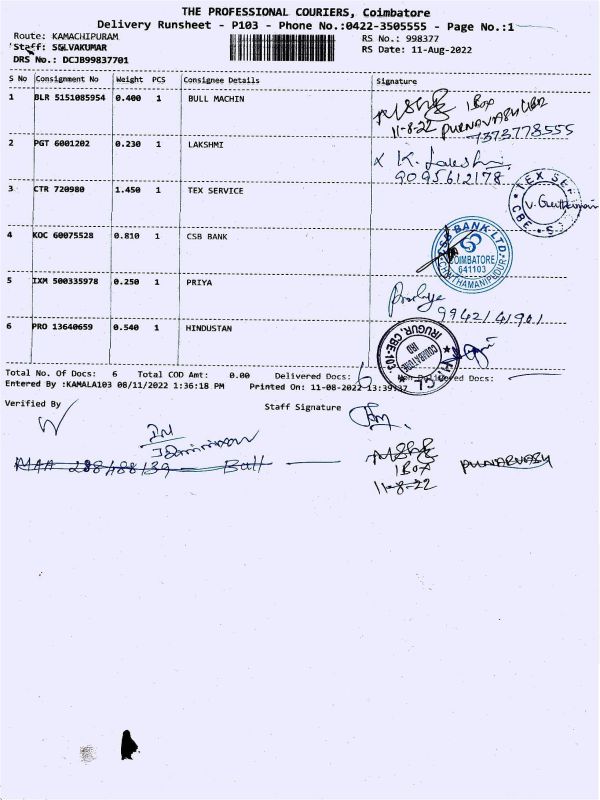 THE PROFESSIONAL COURIERS, Coimbatore
Delivery Runsheet - P103 - Phone No.:0422-3505555 - Page No.:1
Route: KAMACHIPURAM
RS No.: 998377
Staff: SELVAKUMAR
RS Date: 11-Aug-2022
DRS No.: DCJB99837701
S No Consignment No Weight PCS Consignee Details Signature
1 BLR 5151085954 0.400 1 BULL MACHIN
1 BOX
11-8-22 PURNAVASU
7373778555
2 PGT 6001202 0.230 1 LAKSHMI
x K. Lakshmi
9095612178
3 CTR 720980 1.450 1 TEX SERVICE
TEX SER
CBE
4 KOC 60075528 0.810 1 CSB BANK
CSB BANK LTD.
COIMBATORE
641103
5 IXM 500335978 0.250 1 PRIYA
9942141901
6 PRO 13640659 0.540 1 HINDUSTAN
IRUGUR, CBE-103
COIMBATORE
IRD
Total No. Of Docs: 6 Total COD Amt: 0.00 Delivered Docs: 6 Non Delivered Docs:
Entered By :KAMALA103 08/11/2022 1:36:18 PM Printed On: 11-08-2022 13:39:37
Verified By
Staff Signature
MAA 288488139 - Bull
1 BOX
11-8-22
PUNARVASU